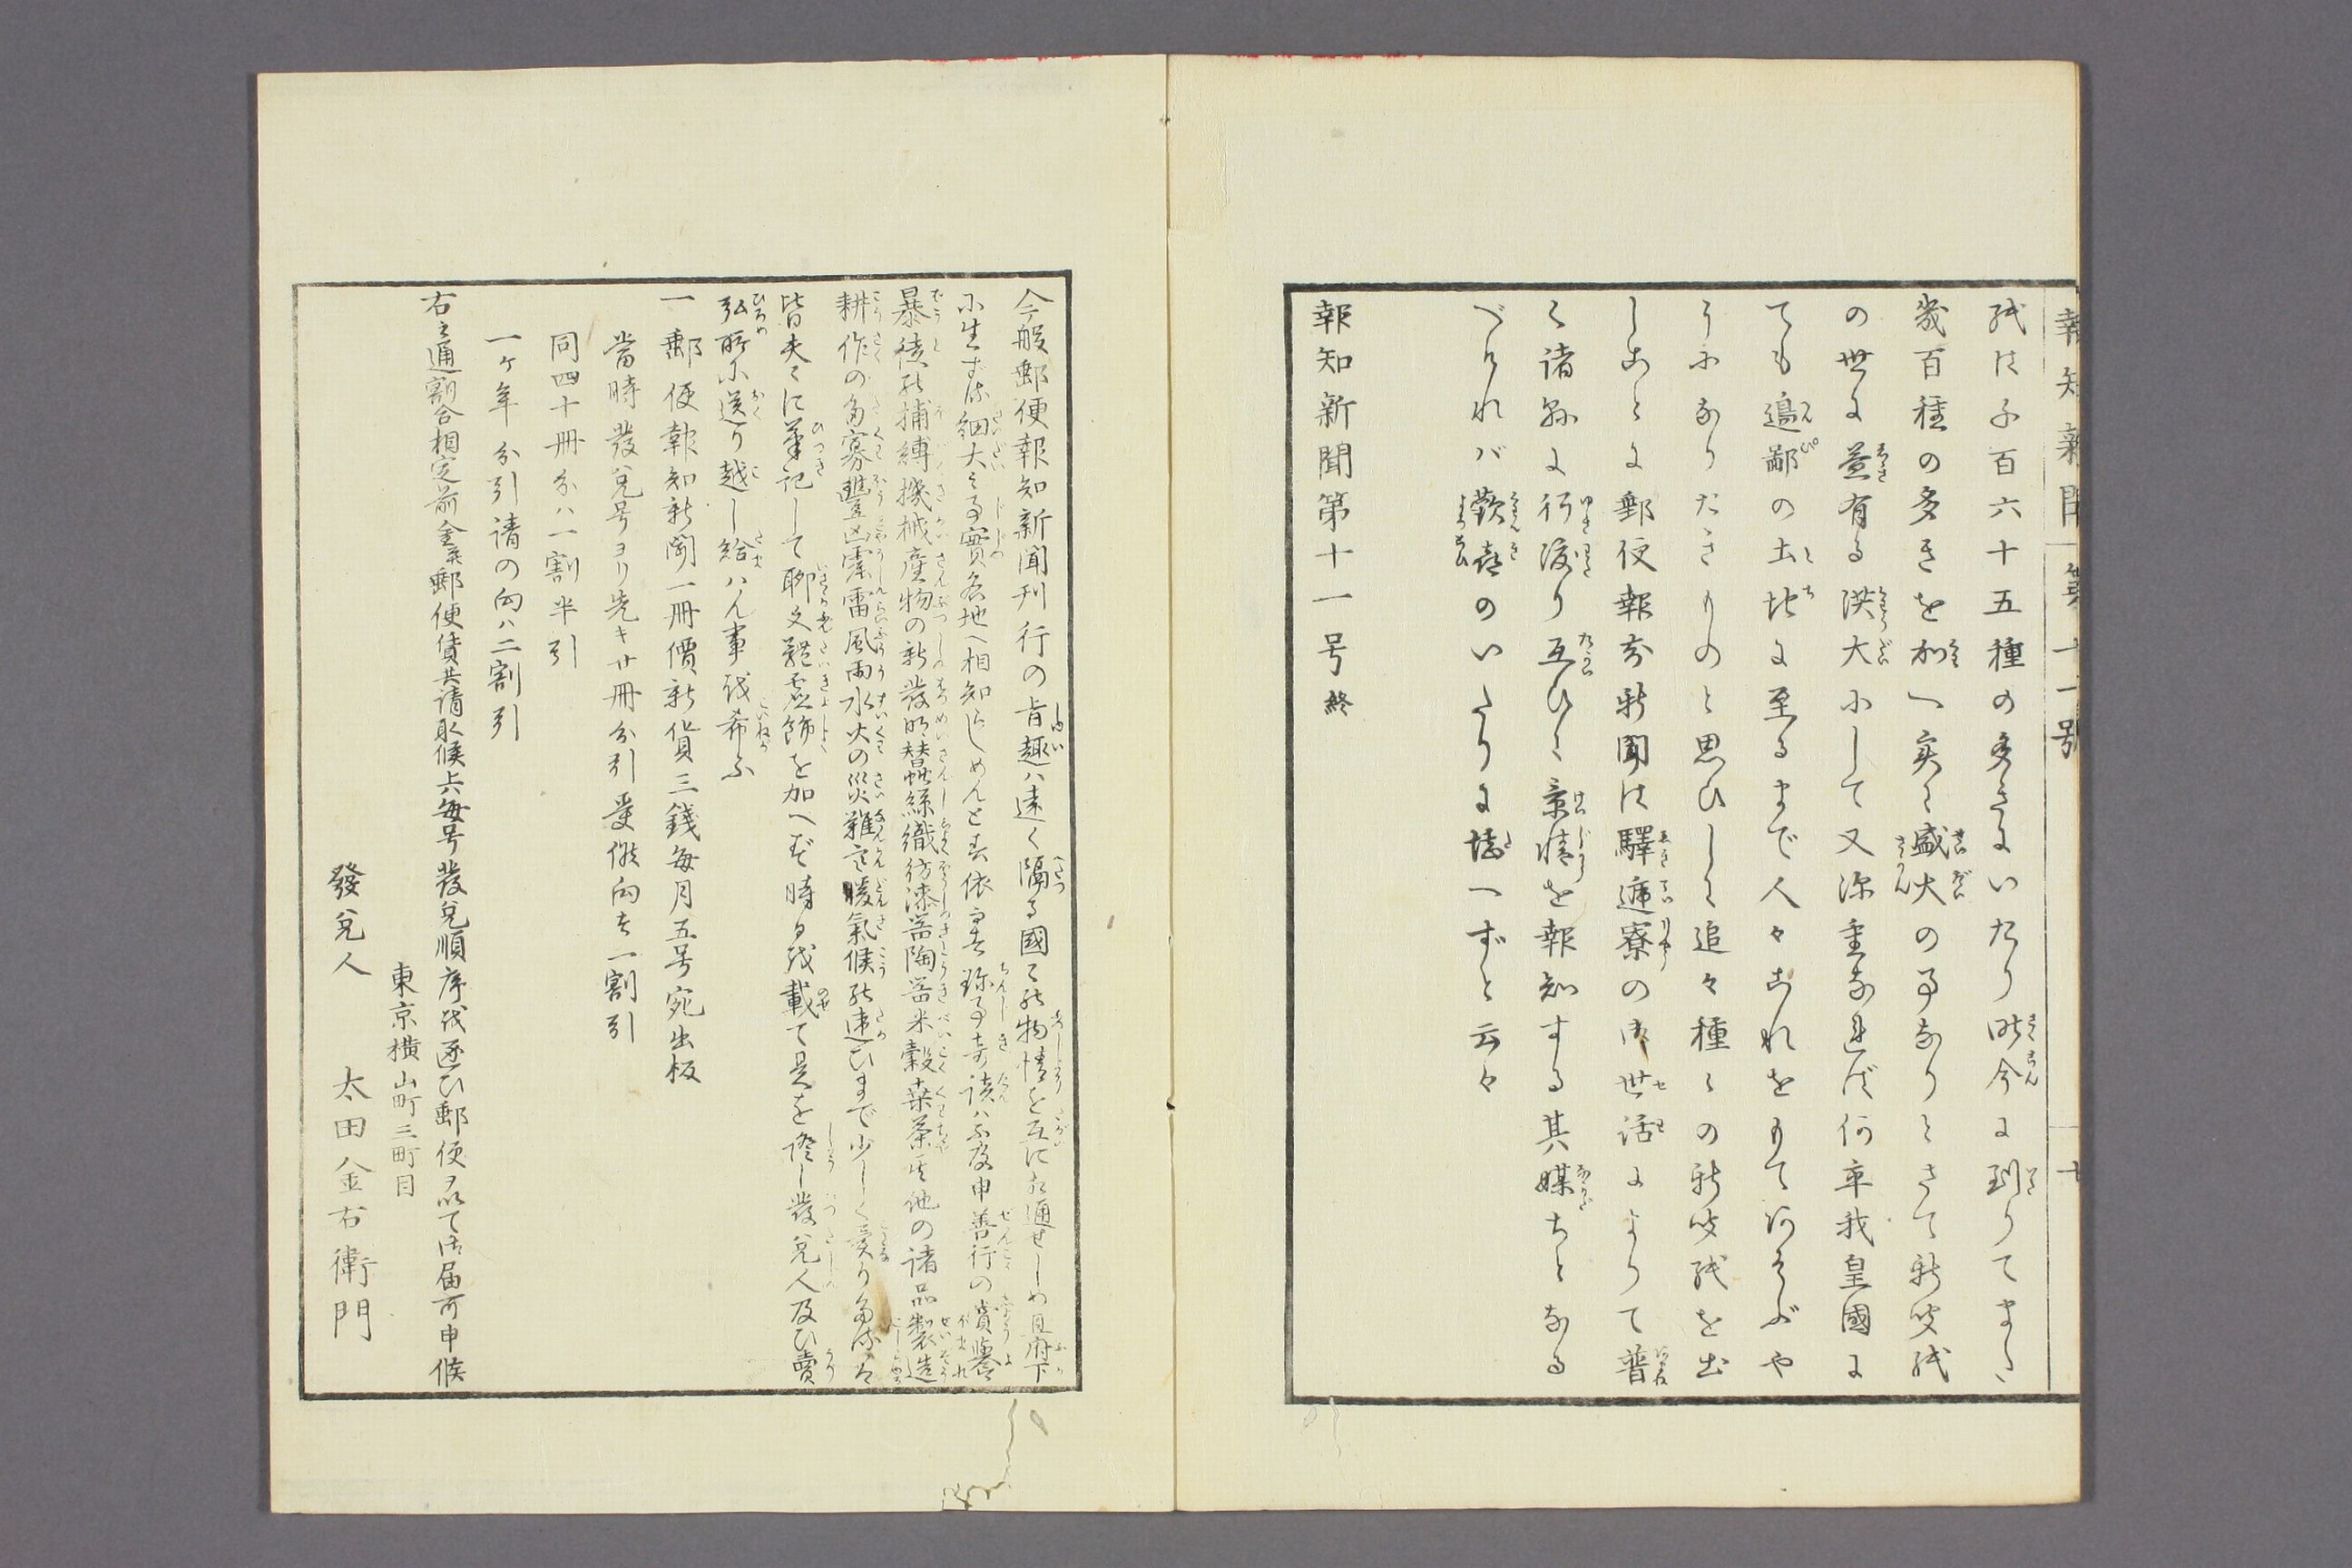 報知新聞 第十一號 十
紙は千百六十五種の多きにいたり昨今に到りてまた
幾百種の多きを加へ実に盛大の事なりとさて新聞紙
の世に益有る洪大にして又深重なれば何卒我皇國に
ても邉鄙の土地に至るまで人々これをもてあそぶや
うになりたきものと思ひしに追々種々の新聞紙を出
しことに郵便報知新聞は驛逓寮の御世話によりて普
く諸縣に行渡り互ひに景情を報知する其媒ちとなる
べければ歡喜のいたりに堪へずと云々
報知新聞第十一号終
今般郵便報知新聞刊行の旨趣ハ遠く隔る國々の物情を互に相通せしめ且府下
に生ずる細大之事實各地へ相知らしめんとす依而者珍事奇談ハ不及申善行の賞譽
暴徒の捕縛機械産物の新發明蠶絲織紡漆器陶器米穀菜茶其他の諸品製造
耕作の多寡豐凶霖雷風雨水火の災難寒暖氣候の違ひまで少しく異り多るハ
皆夫々に筆記して聊文體虚飾を加へず時日を載て是を證し發兌人及ひ賣
弘所に送り越し給ハん事を希ふ
一 郵便報知新聞一冊價新貨三錢毎月五号宛出板
當時發兌号ヨリ先キ廿冊分引受候向は一割引
同四十冊分ハ一割半引
一ヶ年分引請の向ハ二割引
右之通割合相定前金并郵便賃共請取候上毎号發兌順序を逐ひ郵便ヲ以て御届可申候
東京横山町三町目
發兌人 太田金右衛門